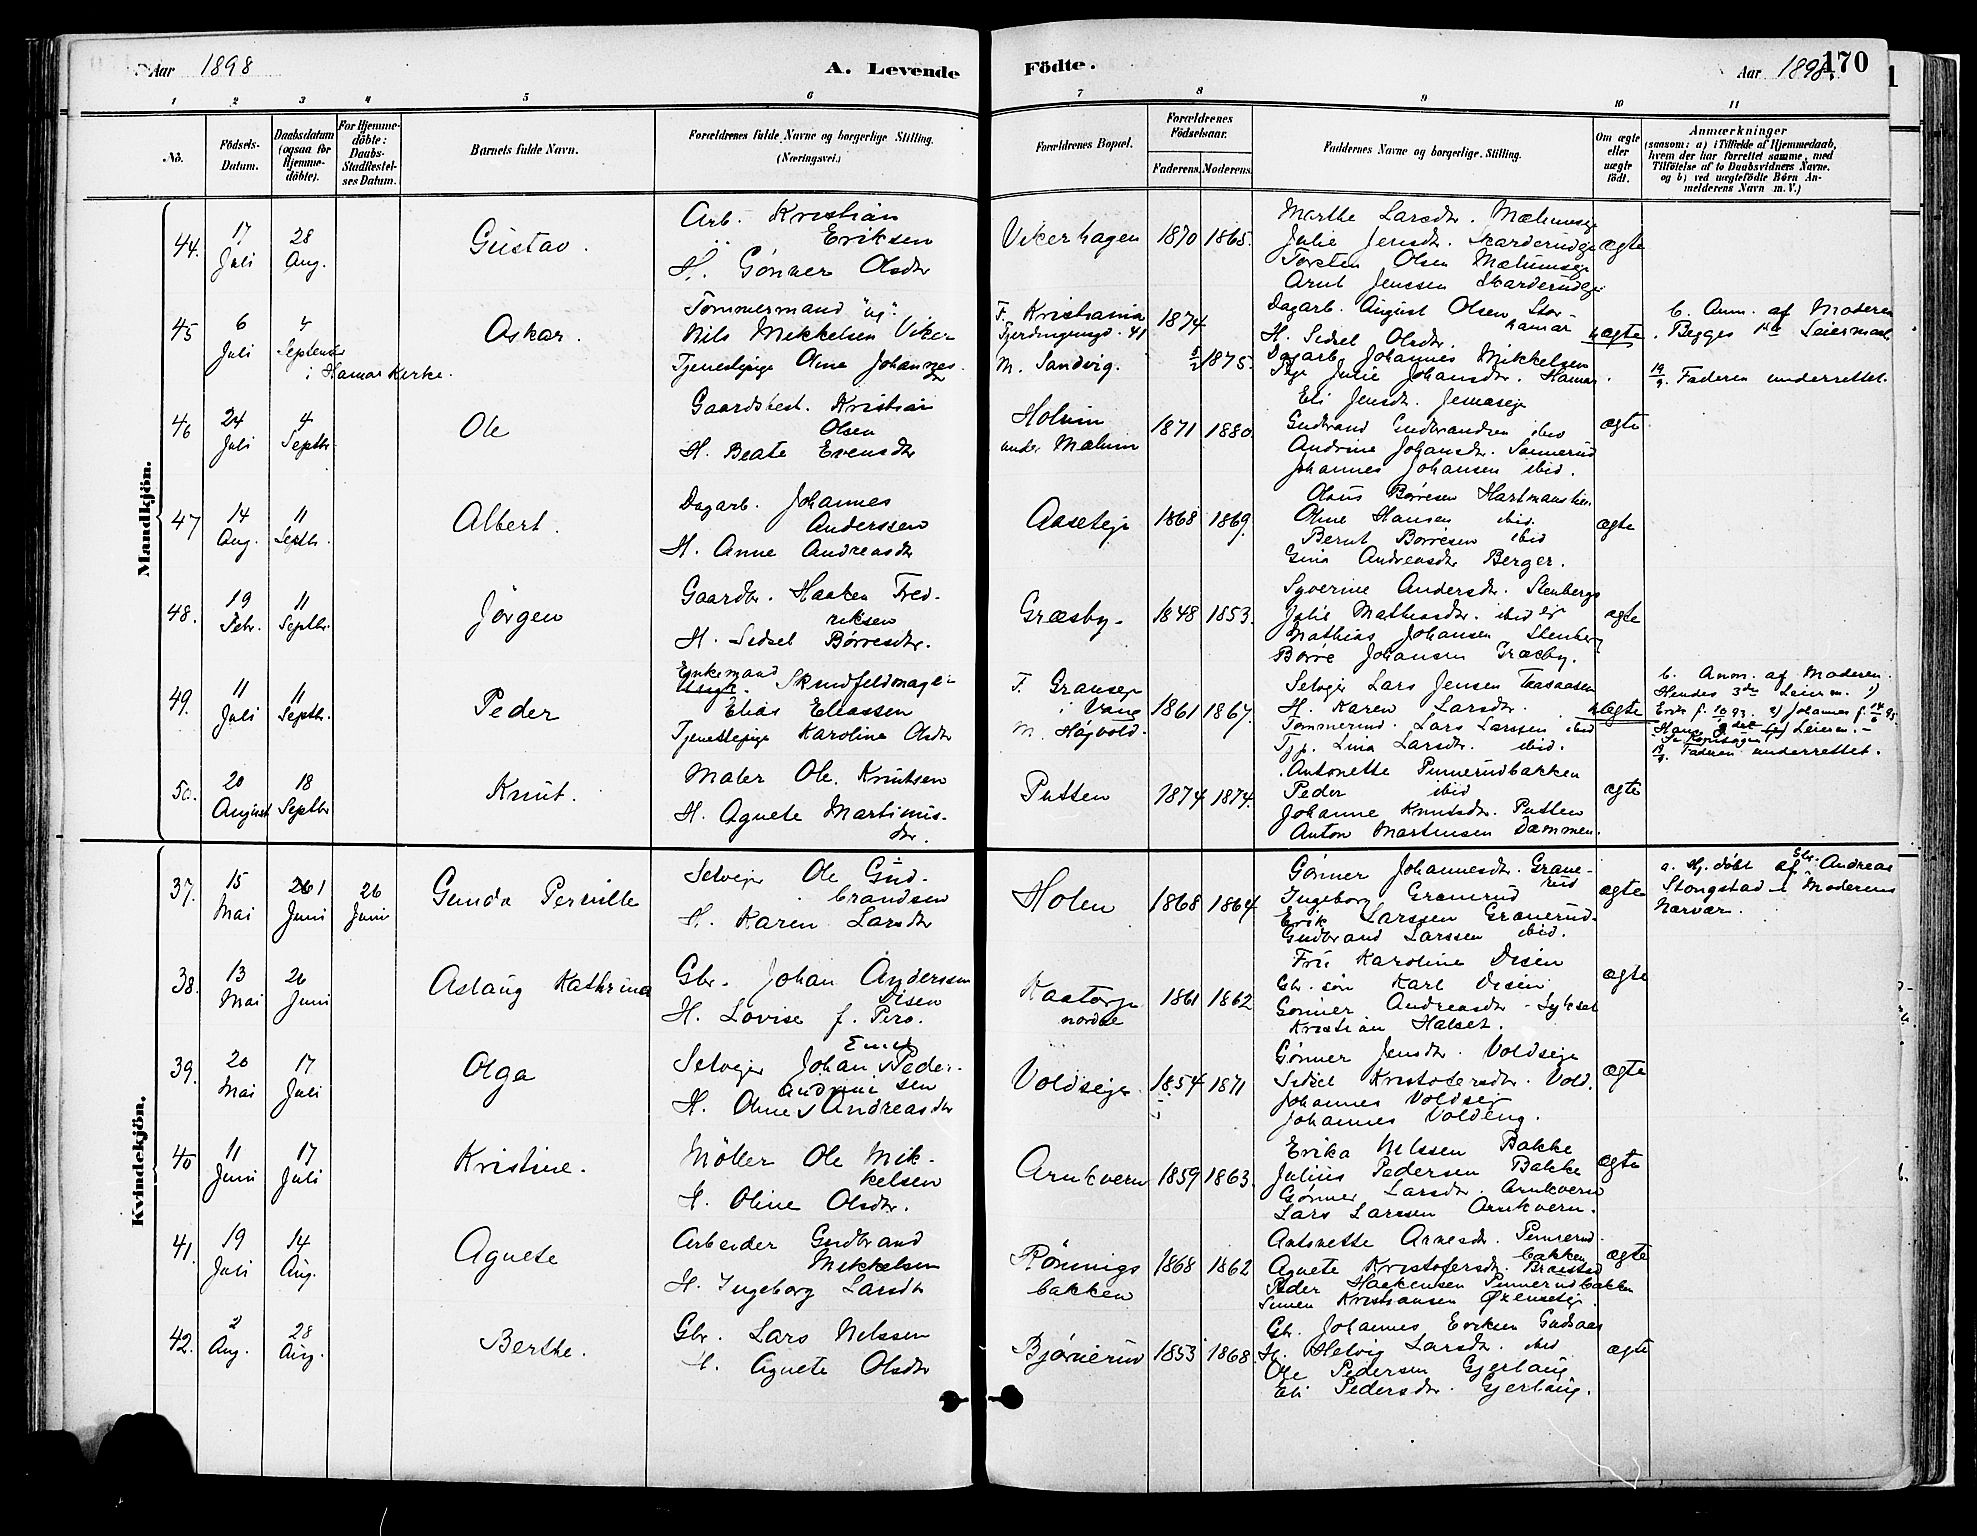 Aar 1898
A. Levende
Födte.
Aar 1898.
170
1 2 3 4 5 6 7 8 9 10 11
No.
Födsels-Datum.
Daabsdatum (ogsaa for Hjemme-döbte).
For Hjemme-döbte: Daabs-Stadfæstel-ses Datum.
Barnets fulde Navn.
Forældrenes fulde Navne og borgerlige Stilling. (Næringsvei.)
Forældrenes Bopæl.
Forældrenes Födselsaar.
Faderens. Moderens.
Faddernes Navne og borgerlige Stilling.
Om ægte eller uægte födt.
Anmærkninger
(saasom: a) i Tilfælde af Hjemmedaab,
hvem der har forrettet samme, med
Tilföielse af to Daabsvidners Navne.
og b) ved uægtefödte Børn An-
melderens Navn m. V.)
Mandkjön.
44. 17 Juli 28 Aug. Gustav.
Arb. Kristian
Eriksen
H. Gönner Olsdtr
Vikerhagen 1870 1865.
Marthe Larsdtr. Mælumseje
Julie Jensdtr. Skarderudeje
Torsten Olsen Mælumseje
Arnt Jenssen Skarderudeje
ægte
45 6 Juli 4 September i Hamar Kirke. Oskar.
Tømmermand ug.
Nils Mikkelsen Viker-
Tjenestepige Oline Johannes-
dtr
F. Kristiania
Fjerdingengd. 41
M. Sandvig.
1874 1875.
Dagarb. August Olsen Stor-
hamar
H. Sidsel Olsdtr.
Dagarb. Johannes Mikkelsen
Pige Julie Johansdtr. Hamar.
uægte
b. Anm. af Moderen
Begges 1ste Leiermaal
19/9. Faderen underrettet.
46 24 Juli 4 Septbr. Ole
Gaardbest. Kristian
Olsen
H. Beate Evensdtr
Holum
under Mælum
1871 1880.
Eli Jensdtr. Jemaseje
Gudbrand Gudbrandsen ibid
Andrine Johansdtr. Sannerud
Johannes Johansen ibid.
ægte
47 14 Aug. 11 Septbr. Albert.
Dagarb. Johannes
Anderssen
H. Anne Andreasdtr
Aaseteje 1868 1869.
Olaus Børresen Hartmanstuen
Oline Hansen ibid.
Bernt Børresen ibid
Gina Andreasdtr Berger.
ægte
48. 19 Febr. 11 Septbr. Jörgen
Gaardbr. Haaken Fred-
riksen
H. Sidsel Börresdtr.
Græsby 1848 1853.
Syverine Andersdtr. Stenberg
Julie Mathiasdtr. ibid
Mathias Johansen Stenberg
Børre Johansen Græsby.
ægte
49. 11 Juli 11 Septbr. Peder
Enkemand
Skindfeldmager
Elias Eliassen
Tjenestepige Karoline Olsdtr
F. Granseje
i Vang
M. Højvold.
1861 1867.
Selvejer Lars Jensen Taasaasen
H. Karen Larsdtr.
Tømmermd. Lars Larsen ibid
Tjp. Lina Larsdtr. ibid.
uægte
b. Anm. af Moderen.
Hendes 3die Leierm. 1)
Erik f. 10/9 93. 2) Johannes f. 14/6 95.
Hans Leierm.
19/9. Faderen underrettet.
50. 20 August 18 Septbr Knut.
Maler Ole Knutsen
H. Agnete Martinus-
dtr.
Putten 1874 1874.
Antonette Pinnerudbakken
Peder ibid
Johanne Knutsdtr. Putten
Anton Martinsen Dammen.
ægte
Kvindekjön.
37. 15 Mai 26 Juni 26 Juni Gunda Pernille
Selvejer Ole Gud-
brandsen
H. Karen Larsdtr
Holen 1868 1864
Gönner Johannesdtr. Grane-
rud
Ingeborg Granerud
Erik Larssen Granerud.
Gudbrand Larssen ibid.
ægte
a. Hj. döbt af Gbr. Andreas
Stongstad i Moderens
Nærvær.
38. 13 Mai 26 Juni Aslaug Kathrine
Gbr. Johan Anderssen
Disen
H. Lovise f. Pero.
Kaatorp
nordre
1861 1862
Fru Karoline Disen
Gbr. sön Karl Disen
Gönner Andreasdtr. Lykset
Kristian Halset.
ægte
39. 20 Mai 17 Juli Olga
Selvejer Johan Emil Peder-
sen
H. Oline Andrine Andreasdtr
Voldseje. 1854 1871
Gönner Jensdtr. Voldseje
Sidsel Kristofersdtr. Vold.
Johannes Voldseje
Johannes Voldeng.
ægte
40 11 Juni 17 Juli Kristine.
Möller Ole Mik-
kelsen
H. Oline Olsdtr.
Arnkvern 1859 1863.
Erika Nilssen Bakke
Julius Pedersen Bakke
Gönner Larsdtr. Arnkvern
Lars Larssen Arnkvern.
ægte
41. 19 Juli 14 Aug. Agnete
Arbeider Gudbrand
Mikkelsen
H. Ingeborg Larsdtr
Rönnings
bakken
1868 1862
Antonette Arnesdtr. Pinnerud-
bakken
Agnete Kristofersdtr. Braastad
Peder Haakensen Pinnerudbakken
Simen Kristiansen Øxenseteje.
ægte
42. 2 Aug. 28 Aug. Berthe.
Gbr. Lars Nilssen
H. Agnete Olsdtr
Bjørnerud 1853 1868.
Gbr. Johannes Eriksen Gudsaas
H. Helvig Larsdtr. ibid
Ole Pedersen Gjerlaug
Eli Pedersdtr. Gjerlaug.
ægte